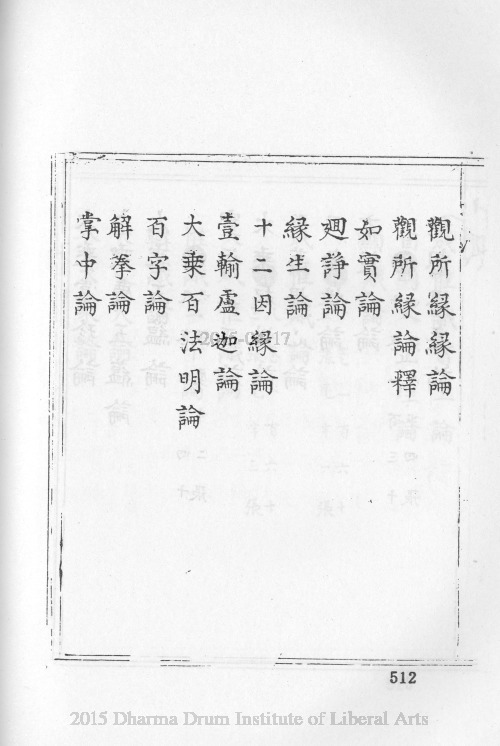 觀所緣緣論
觀所緣論釋
如實論
廻諍論
緣生論
十二因緣論
壹輸盧迦論
大乗百法明論
百字論
解拳論
掌中論
512
2015 Dharma Drum Institute of Liberal Arts